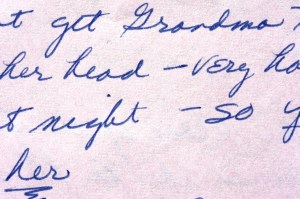 t get Grandma
her head - very ho
t night - so y
her